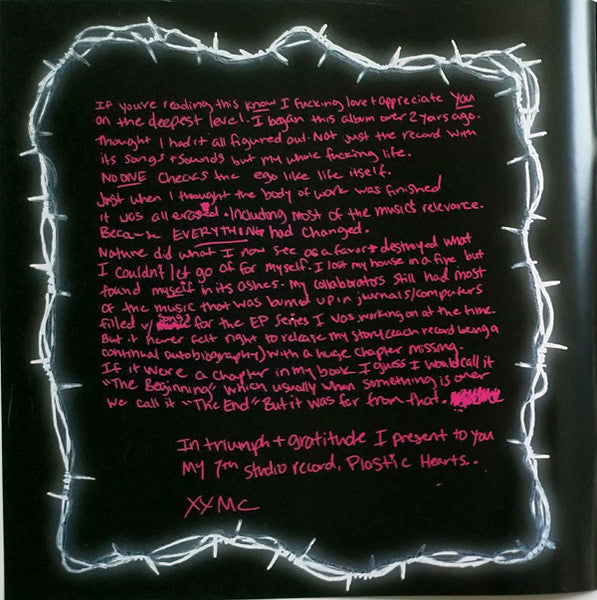 If you're reading this know I fucking love + appreciate you
on the deepest level. I began this album over 2 years ago.
Thought I had it all figured out. Not just the record with
its songs + sounds but my whole fucking life.
NO ONE checks the ego like life itself.
Just when I thought the body of work was finished
it was all erased. Including most of the musics relevance.
Because EVERYTHING had changed.
Nature did what I now see as a favor + destroyed what
I couldn't let go of for myself. I lost my house in a fire but
found myself in its ashes. My collaborators still had most
of the music that was burned up in journals/computers
filled w/ songs for the EP series I was working on at the time.
But it never felt right to release my story (each record being a
continual autobiography) with a huge chapter missing.
If it were a chapter in my book I guess I would call it
"The Beginning" which usually when something is over
we call it "The End" But it was far from that.
In triumph + gratitude I present to you
My 7th studio record, Plastic Hearts..
XXMC